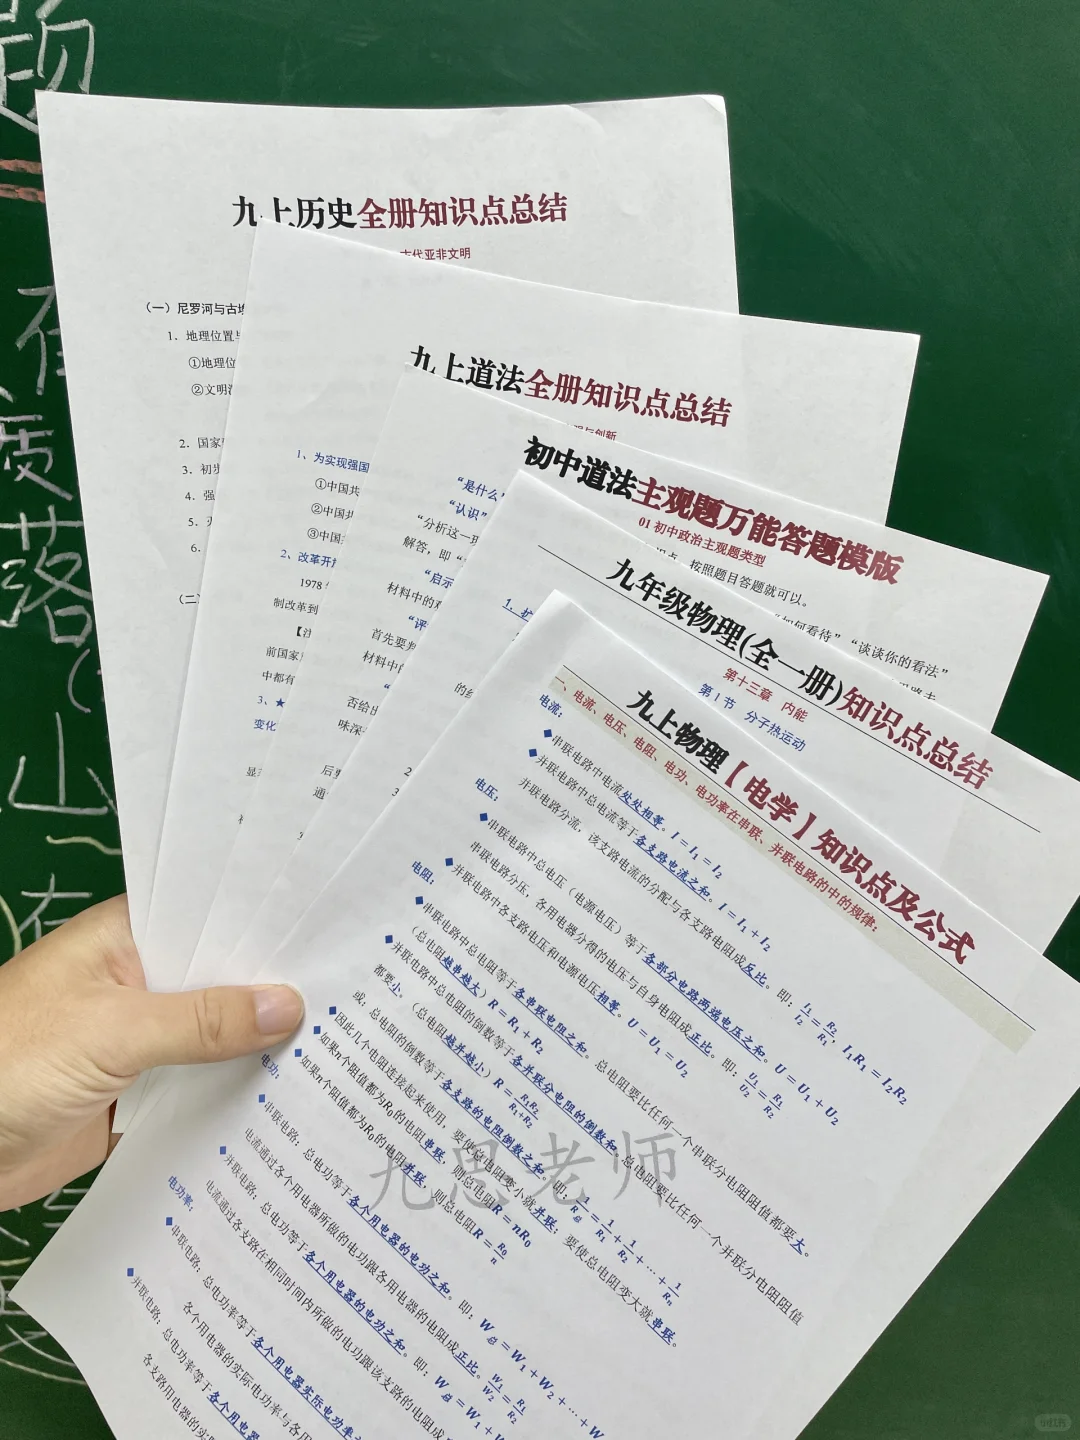 题
有
质
落(
山
有
九上历史全册知识点总结
古代亚非文明
(一)尼罗河与古埃
1、地理位置与
①地理位
②文明
2、国家
3、初步
4、强
5、
6、
(二
九上道法全册知识点总结
与创新
1、为实现强国
①中国共
②中国共
③中国
2、改革开放
1978
制改革到
【注
前国家
中都有
3、★
变化
初中道法主观题万能答题模版
01 初中政治主观题类型
“是什么”
点,按照题目答题就可以。
“认识”
“如何看待”“谈谈你的看法”
“分析这一现
解答,即“
“启示
材料中的观
“评
首先要判
材料中的
否给出
味深
九年级物理(全一册)知识点总结
第十三章 内能
第1节 分子热运动
1、扩
九上物理【电学】知识点及公式
一、电流、电压、电阻、电功、电功率在串联、并联电路的中的规律:
电流:
■ 串联电路中电流处处相等。I=I₁=I₂
■ 并联电路中总电流等于各支路电流之和。I=I₁+I₂
并联电路分流,该支路电流的分配与各支路电阻成反比。即:I₁/I₂=R₂/R₁,I₁R₁=I₂R₂
电压:
■ 串联电路中总电压(电源电压)等于各部分电路两端电压之和。U=U₁+U₂
串联电路分压,各用电器分得的电压与自身电阻成正比。即:U₁/U₂=R₁/R₂
■ 并联电路中各支路电压和电源电压相等。U=U₁=U₂
电阻:
■ 串联电路中总电阻等于各串联电阻之和。总电阻要比任何一个串联分电阻阻值都要大。
(总电阻越串越大)R=R₁+R₂
■ 并联电路中总电阻的倒数等于各并联分电阻的倒数和。总电阻要比任何一个并联分电阻阻值
都要小。(总电阻越并越小)R=R₁R₂/(R₁+R₂)
或:总电阻的倒数等于各支路的电阻倒数之和。即:1/R总=1/R₁+1/R₂+…+1/Rₙ
■ 因此几个电阻连接起来使用,要使总电阻变小就并联;要使总电阻变大就串联。
■ 如果n个阻值都为R₀的电阻串联,则总电阻R=nR₀
■ 如果n个阻值都为R₀的电阻并联,则总电阻R=R₀/n
电功:
■ 串联电路:总电功等于各个用电器的电功之和。即:W总=W₁+W₂+…+W
电流通过各个用电器所做的电功跟各用电器的电阻成正比。W₁/W₂=R₁/R₂
■ 并联电路:总电功等于各个用电器的电功之和。即:W总=W₁+W
电流通过各支路在相同时间内所做的电功跟该支路的电阻成
电功率:
■ 串联电路:总电功率等于各个用电器实际电功率
各个用电器的实际电功率与各
■ 并联电路:总电功率等于各个用电器
各支路用电器的实际
九思老师